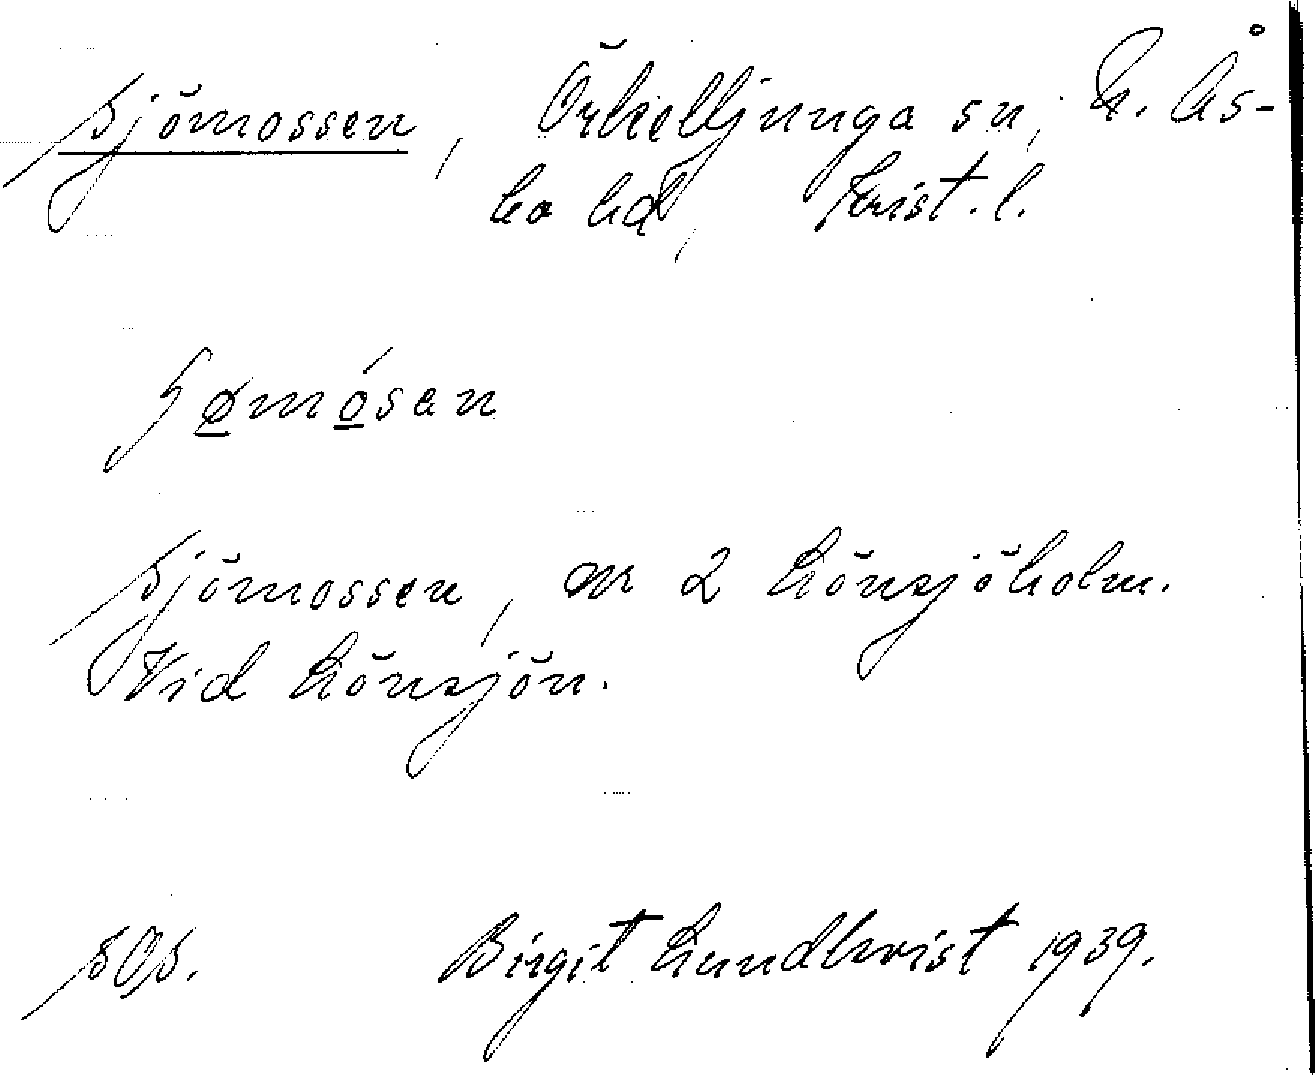 Sjömossen, Örkelljunga sn, N. Ås-
bo hd, Krist. l.
ʃø̱mó̱san
Sjömossen, nr 2 Lönsjöholm.
Vid Lönsjön.
SOS. Birgit Lundkvist 1939.